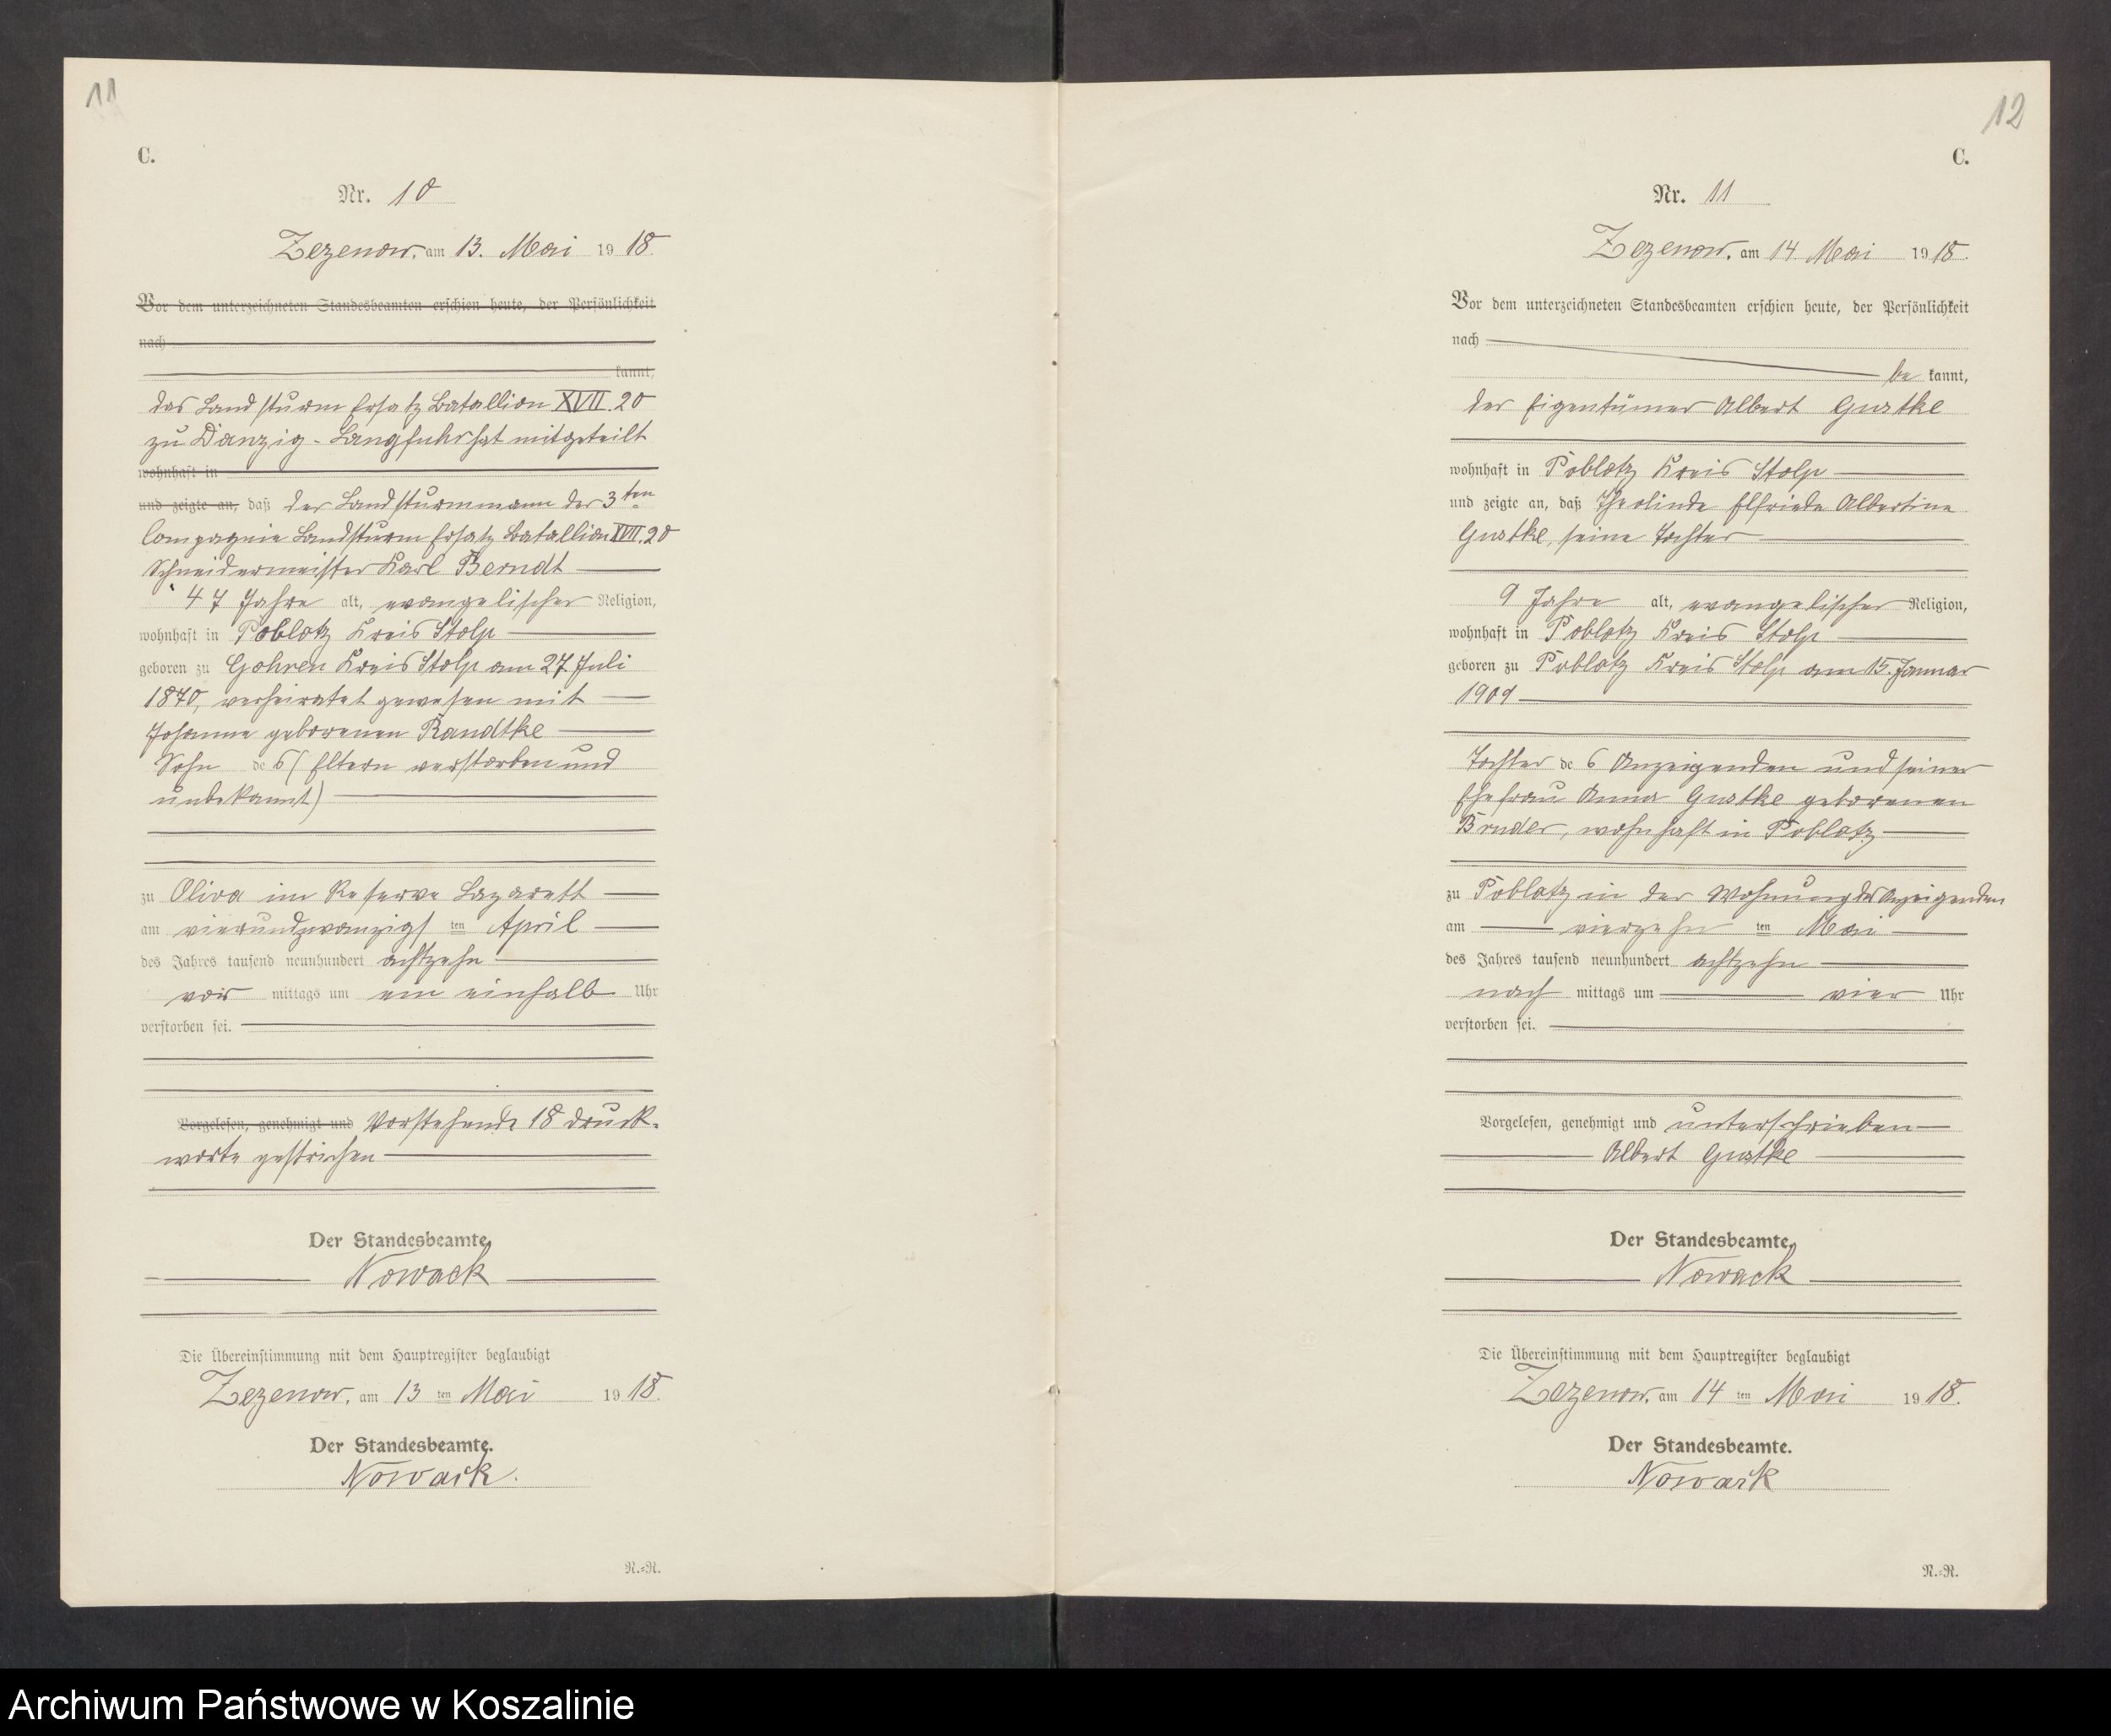 11
C.
Nr. 10
Zezenow, am 13. Mai 1918.
Vor dem unterzeichneten Standesbeamten erschien heute, der Persönlichkeit
nach
kannt,
das Landsturm Ersatz Batallion XVII.20
zu Danzig-Langfuhr hat mitgeteilt
wohnhaft in
und zeigte an, daß der Landsturmmann der 3ten
Compagnie Landsturm Ersatz Batallion XVII.20
Schneidermeister Karl Berndt
47 Jahre alt, evangelischer Religion,
wohnhaft in Poblotz Kreis Stolp
geboren zu Gohren Kreis Stolp am 27. Juli
1870, verheiratet gewesen mit
Johanne geborenen Randtke
Sohn des (Eltern verstorben und
unbekannt)
zu Oliva im Reserve Lazarett
am vierundzwanzigsten April
des Jahres tausend neunhundert achtzehn
vor mittags um ein einhalb Uhr
verstorben sei.
Vorgelesen, genehmigt und Vorstehende 18 Druck-
worte gestrichen
Der Standesbeamte,
Nowack
Die Übereinstimmung mit dem Hauptregister beglaubigt
Zezenow, am 13 ten Mai 1918.
Der Standesbeamte.
Nowack.
R.=R.
12
C.
Nr. 11
Zezenow, am 14 Mai 1918.
Vor dem unterzeichneten Standesbeamten erschien heute, der Persönlichkeit
nach
be kannt,
der Eigentümer Albert Gustke
wohnhaft in Poblotz Kreis Stolp
und zeigte an, daß Theolinde Elfriede Albertine
Gustke, seine Tochter
9 Jahre alt, evangelischer Religion,
wohnhaft in Poblotz Kreis Stolp
geboren zu Poblotz Kreis Stolp am 15. Januar
1909
Tochter des Anzeigenden und seiner
Ehefrau Anna Gustke geborenen
Bruder, wohnhaft in Poblotz
zu Poblotz in der Wohnung des Anzeigenden
am vierzehn ten Mai
des Jahres tausend neunhundert achtzehn
nach mittags um vier Uhr
verstorben sei.
Vorgelesen, genehmigt und unterschrieben
Albert Gustke
Der Standesbeamte,
Nowack
Die Übereinstimmung mit dem Hauptregister beglaubigt
Zezenow, am 14 ten Mai 1918.
Der Standesbeamte.
Nowack
R.=R.
Archiwum Państwowe w Koszalinie